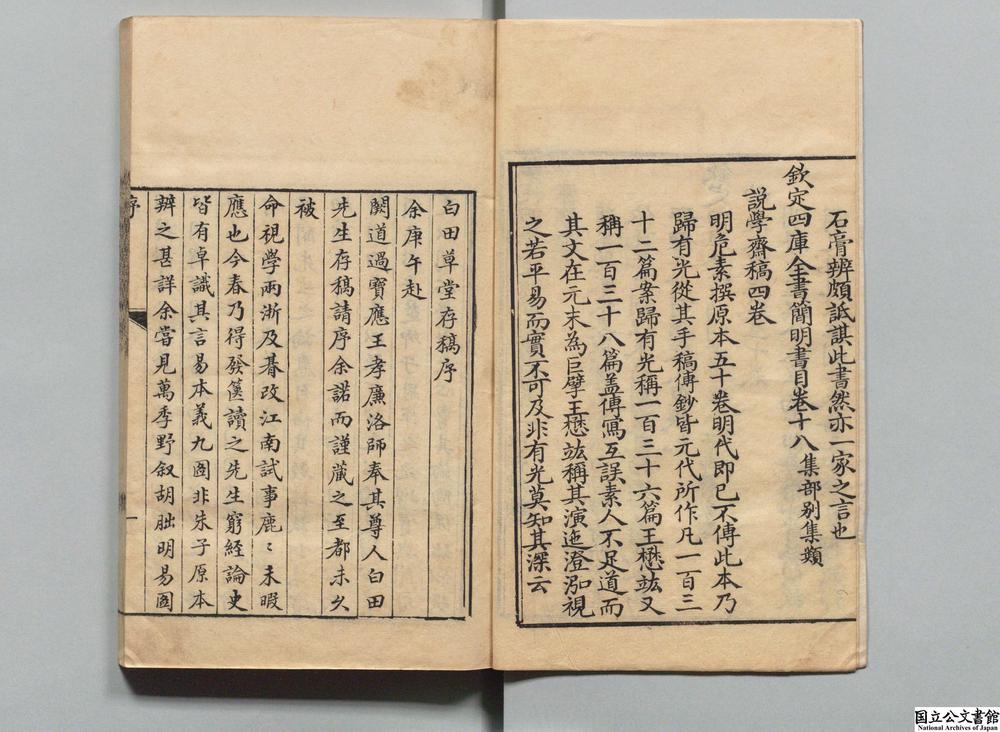 石膏辨頗詆諆此書然亦一家之言也
欽定四庫全書簡明書目卷十八集部别集類
説學齋稿四卷
明危素撰原本五十卷明代即已不傳此本乃
歸有光從其手稿傳鈔皆元代所作凡一百三
十二篇案歸有光稱一百三十六篇王懋竑又
稱一百三十八篇盖傳寫互誤素人不足道而
其文在元末為巨擘王懋竑稱其演迤澄泓視
之若平易而實不可及非有光莫知其深云
白田草堂存稿序
余庚午赴
闕道過寶應王孝廉洛師奉其尊人白田
先生存稿請序余諾而謹藏之至都未久
被
命視學兩浙及朞改江南試事鹿〻未暇
應也今春乃得發篋讀之先生窮經論史
皆有卓識其言易本義九圖非朱子原本
辨之甚詳余嘗見萬季野叙胡朏明易圖
序
一
国立公文書館
National Archives of Japan